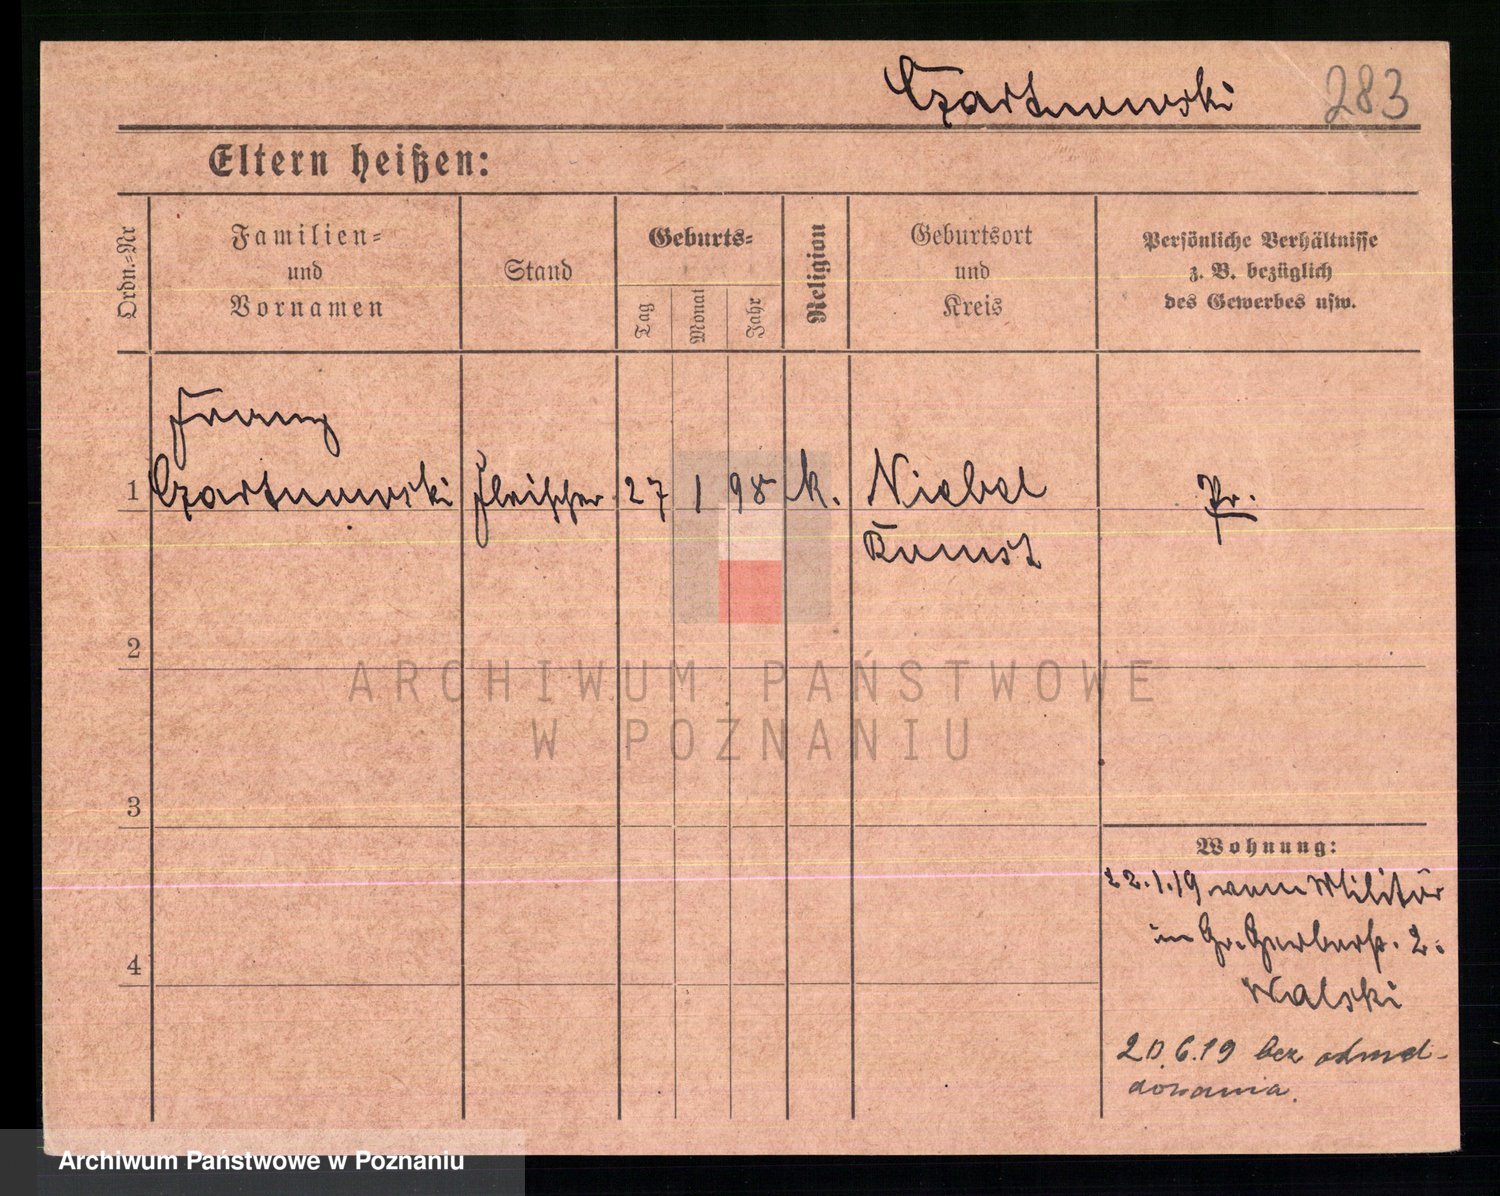 Czartnowski 283
Eltern heißen:
Ordn.-Nr
Familien-
und
Vornamen
Stand
Geburts-
Tag
Monat
Jahr
Religion
Geburtsort
und
Kreis
Persönliche Verhältnisse
z. B. bezüglich
des Gewerbes usw.
Franz
1 Czartnowski Fleischer 27 1 98 k. Niebel Pr.
2
3
4
Wohnung:
22.1.19 vom Militär
in Gr. Gerberst. 2.
Walski
20.6.19 bez odmel-
dowania.
ARCHIWUM PAŃSTWOWE
W POZNANIU
Archiwum Państwowe w Poznaniu